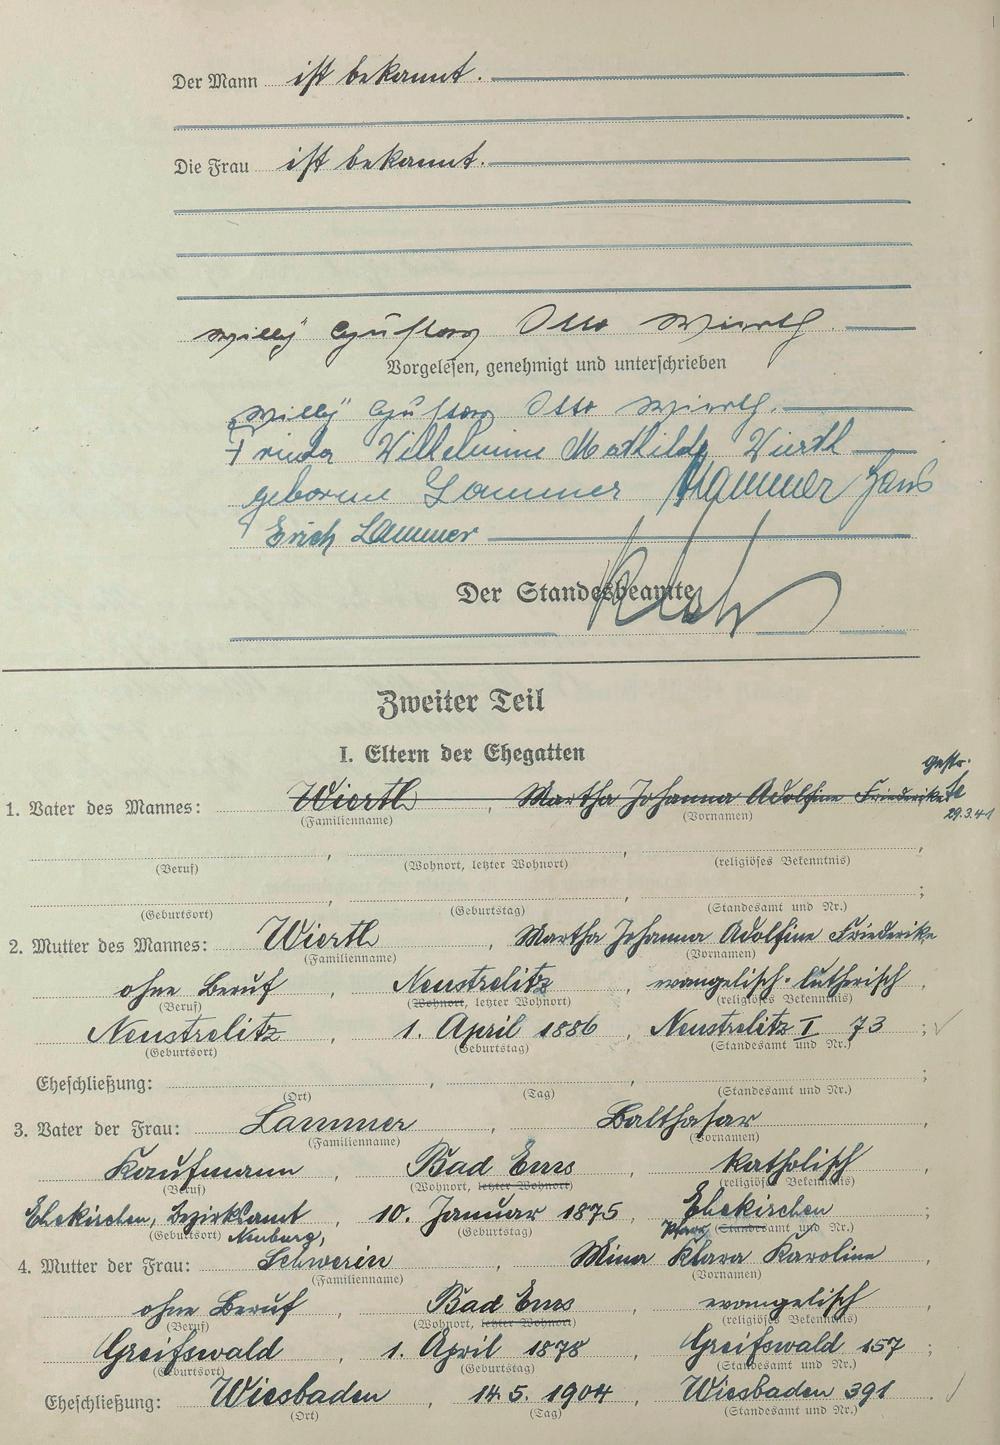 Der Mann ist bekannt.
Die Frau ist bekannt.
Willy Gustav Otto Wierth
Vorgelesen, genehmigt und unterschrieben
Willy Gustav Otto Wierth.
Frieda Wilhelmine Mathilde Wierth
geborene Lammer Hammer Hans
Erich Lammer
Der Standesbeamte
Zweiter Teil
I. Eltern der Ehegatten
gestr.
1. Vater des Mannes: Wierth, Martha Johanna Adolfine Friederike
29.3.41
(Familienname) (Vornamen)
(Beruf) (Wohnort, letzter Wohnort) (religiöses Bekenntnis)
(Geburtsort) (Geburtstag) (Standesamt und Nr.)
2. Mutter des Mannes: Wierth, Martha Johanna Adolfine Friederike
(Familienname) (Vornamen)
ohne Beruf, Neustrelitz, evangelisch-lutherisch,
(Beruf) (Wohnort, letzter Wohnort) (religiöses Bekenntnis)
Neustrelitz, 1. April 1886, Neustrelitz I 73;
(Geburtsort) (Geburtstag) (Standesamt und Nr.)
Eheschließung:
(Ort) (Tag) (Standesamt und Nr.)
3. Vater der Frau: Lammer, Balthasar,
(Familienname) (Vornamen)
Kaufmann, Bad Ems, katholisch,
(Beruf) (Wohnort, letzter Wohnort) (religiöses Bekenntnis)
Ehekirchen, Bezirksamt, 10. Januar 1875, Ehekirchen;
(Geburtsort) Neuburg, (Geburtstag) Pfarr (Standesamt und Nr.)
4. Mutter der Frau: Schwerin, Mina Klara Karoline,
(Familienname) (Vornamen)
ohne Beruf, Bad Ems, evangelisch,
(Beruf) (Wohnort, letzter Wohnort) (religiöses Bekenntnis)
Greifswald, 1. April 1878, Greifswald 157;
(Geburtsort) (Geburtstag) (Standesamt und Nr.)
Eheschließung: Wiesbaden, 14.5.1904, Wiesbaden 391
(Ort) (Tag) (Standesamt und Nr.)